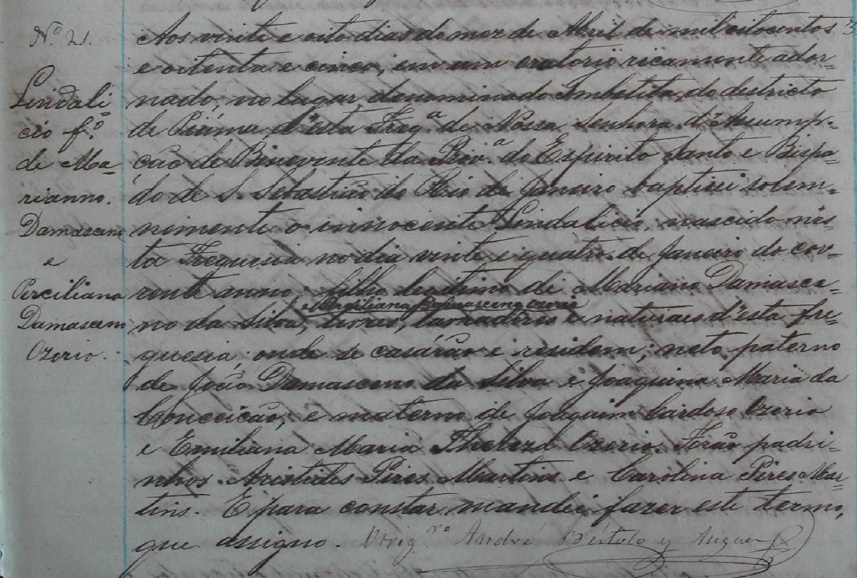 Nº 21.
Lindali
cio fº
de Ma-
rianno
Damasceno
e
Perciliana
Damasceno
Ozorio.
Aos vinte e oito dias do mez de Abril de mil oitocentos
e oitenta e cinco, em um oratorio ricamente ador-
nado, no lugar denominado Imbetiba, do destricto
de Piúma d'esta Fregª de Nossa Senhora d'Assump-
ção de Benevente da Provª do Espirito Santo e Bispa-
do de S. Sebastião do Rio de Janeiro baptisei solem-
nemente o innocente Lindalicio, nascido nes-
ta Freguesia no dia vinte e quatro de Janeiro do cor-
rente anno; filho legitimo de Mariano Damasce-
no da Silva, livres, lavradores e naturaes d'esta fre-
guesia onde se casárão e residem; neto paterno
de João Damasceno da Silva e Joaquina Maria da
Conceição, e materno de Joaquim Cardoso Ozorio
e Emiliana Maria Ozorio. Forão padri-
nhos Aristides Pires Martins e Carolina Pires Mar-
tins. E para constar mandei fazer este termo,
que assigno. O Vigrº André